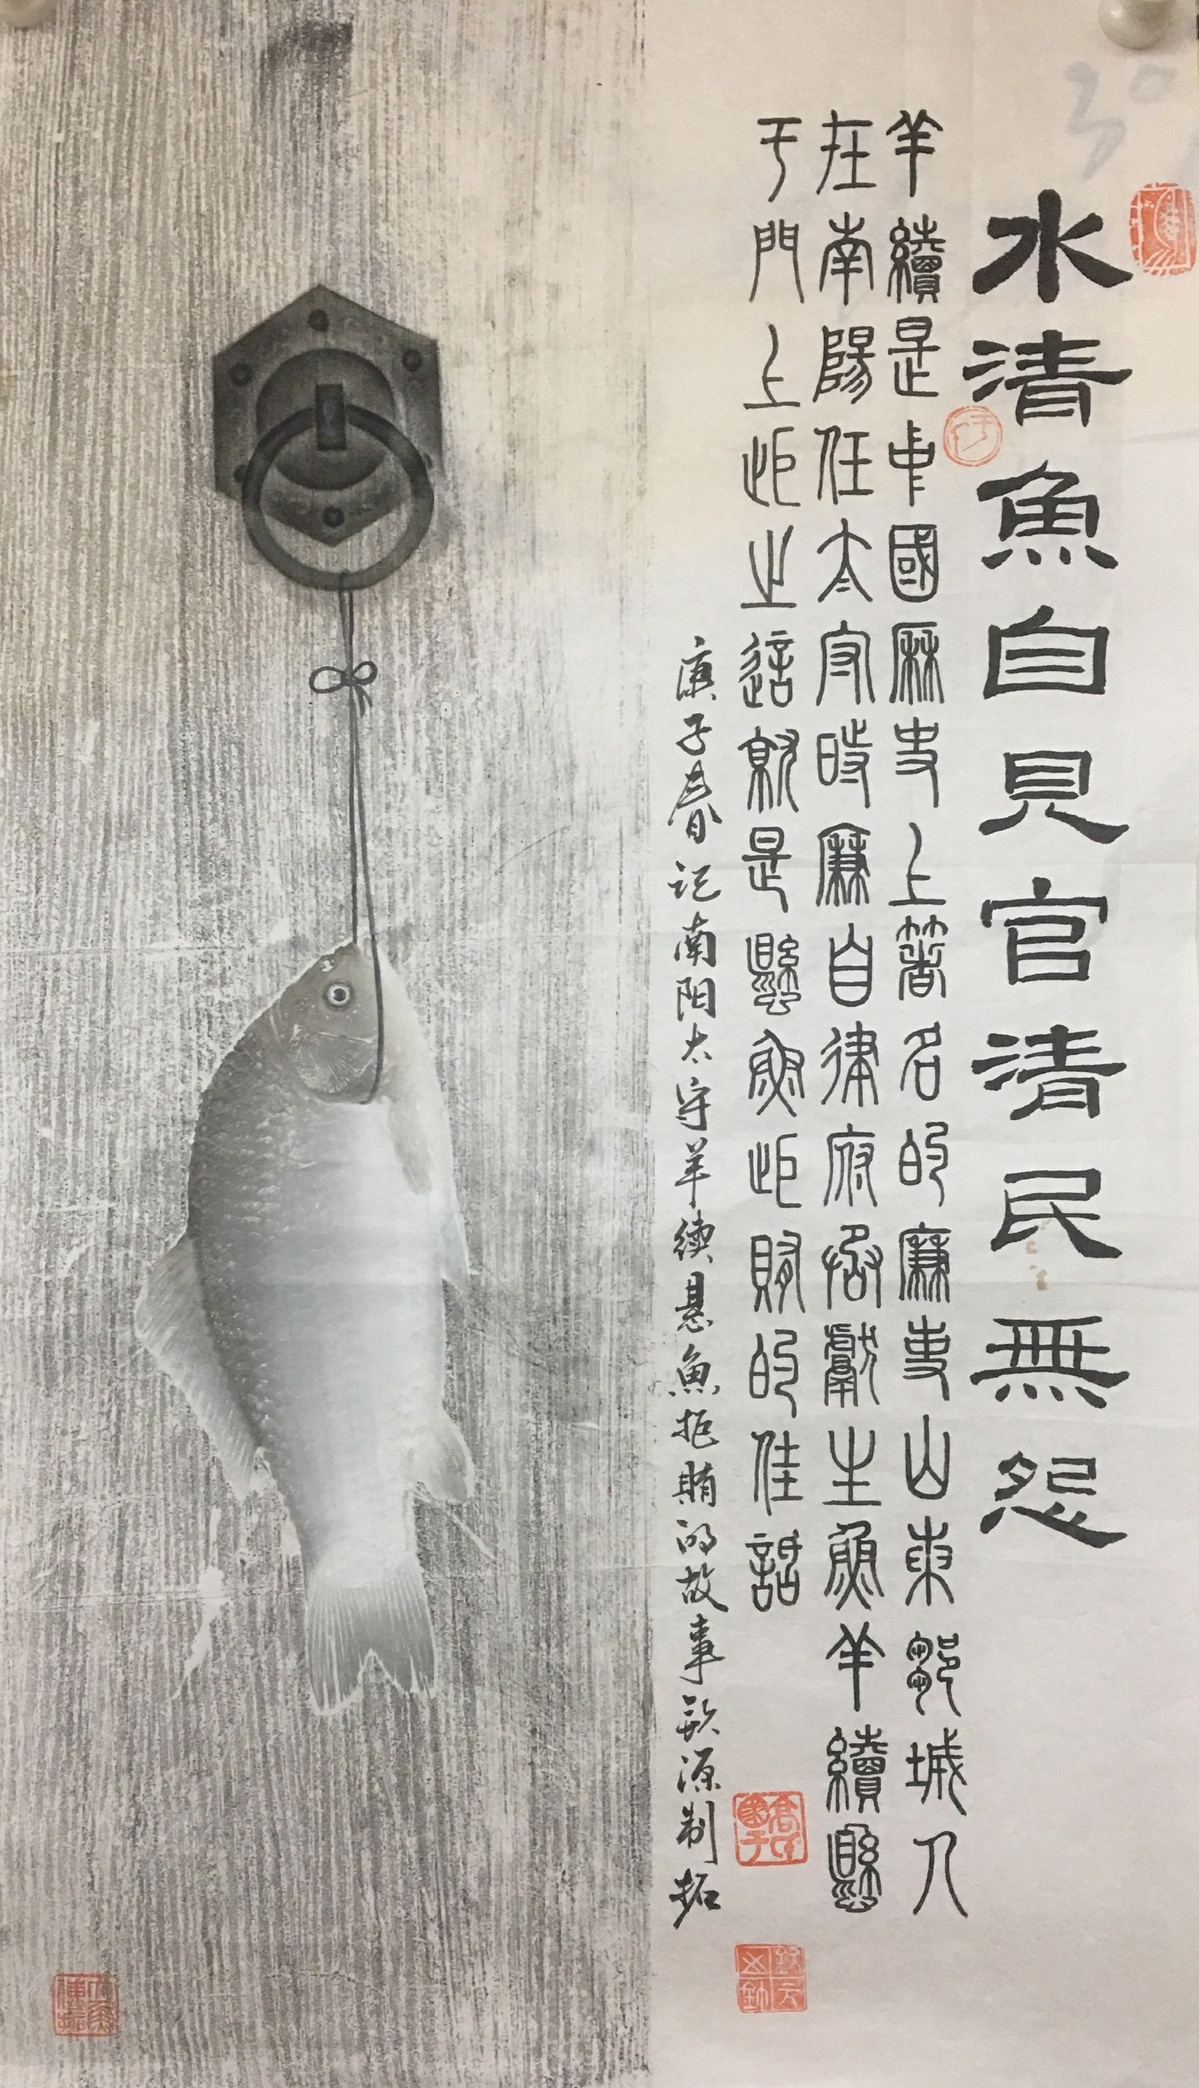 水清魚自見官清民無怨
羊續是中國厤史上箸名的廉吏山東鄒城人
在南陽任太守時廉自律府獻生魚羊續懸
于門上歫止這就是懸魚歫賄的佳話
庚子春记南阳太守羊續悬魚拒賄的故事欽源制拓